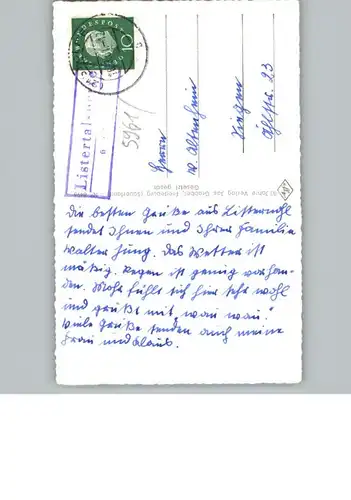 DEUTSCHE BUNDESPOST
10
Listertal
5961
Herrn
v. Altenhein
Siegen
23
Die besten Grüße aus Listernohl
sendet Ihnen und Ihrer Familie
Walter Jung. Das Wetter ist
mäßig. Regen ist genug vorhan-
den. Mohr fühlt sich hier sehr wohl
und grüßt mit „wau wau."
Viele Grüße senden auch meine
Frau und Klaus.